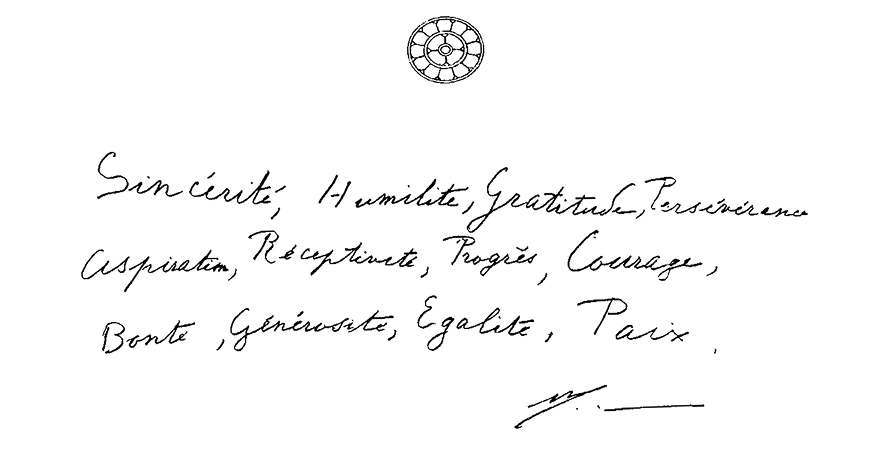 Sincérité, Humilité, Gratitude, Persévérance
Aspiration, Réceptivité, Progrès, Courage,
Bonté, Générosité, Egalité, Paix.